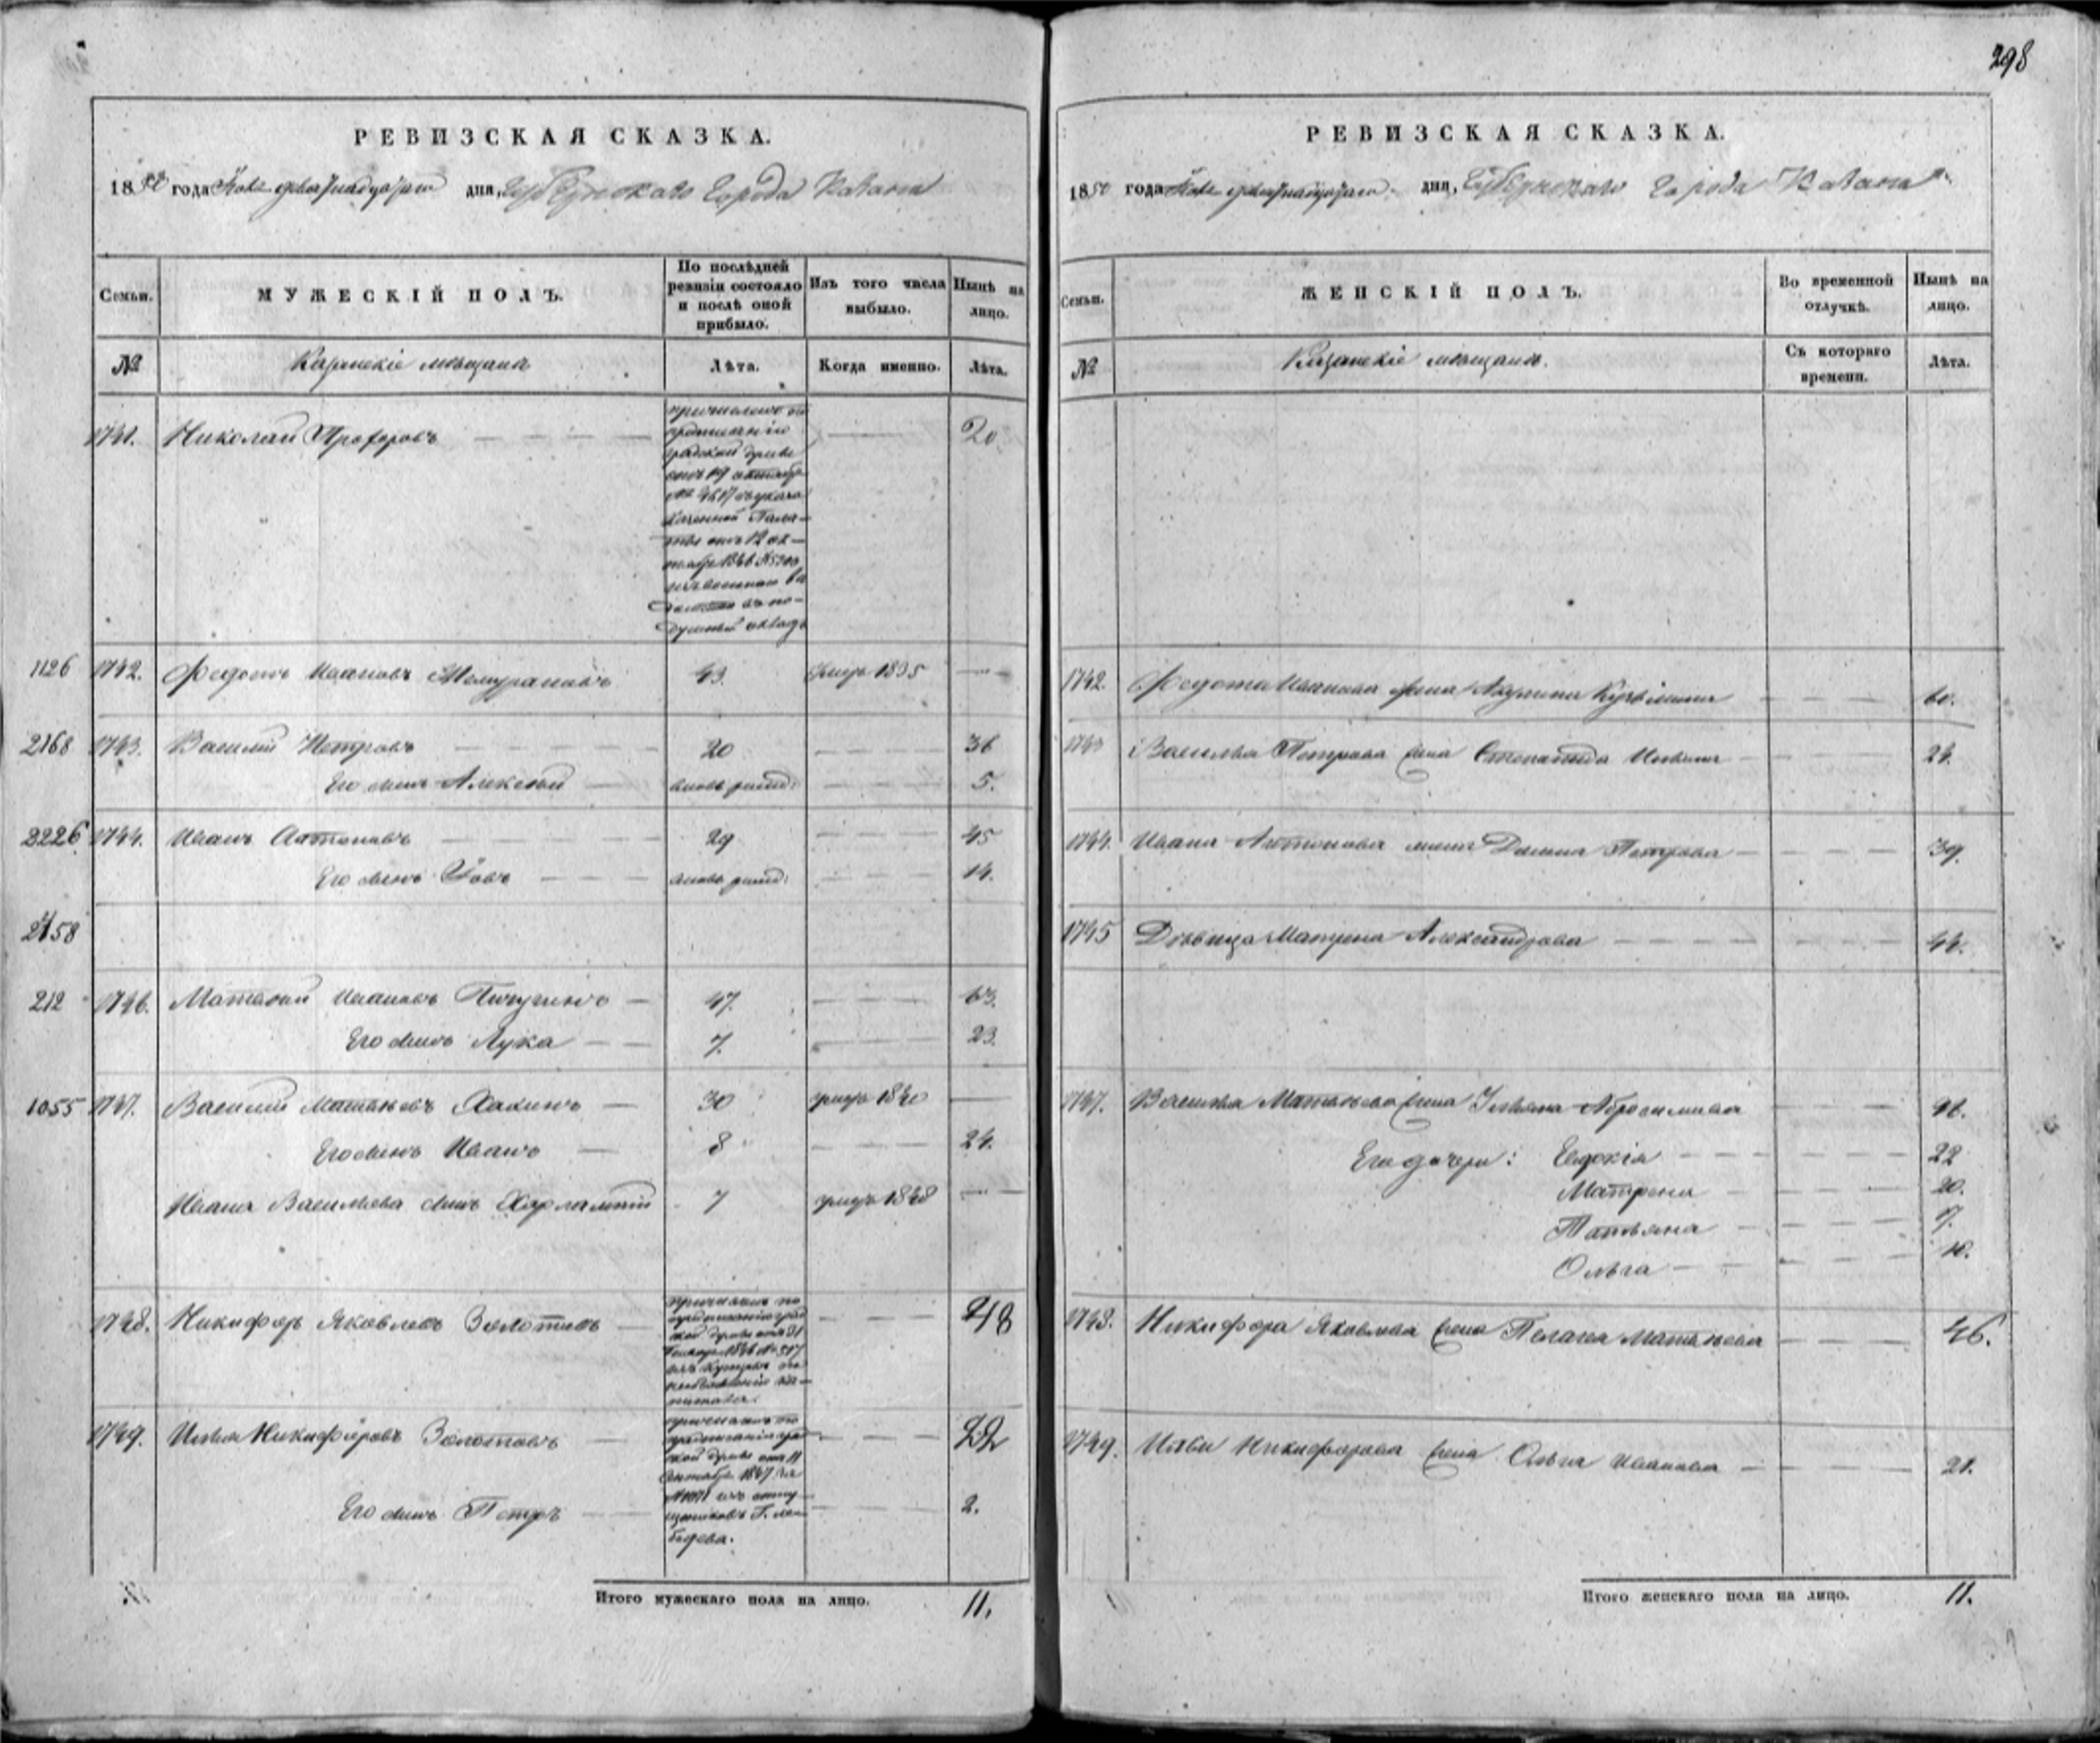 298
РЕВИЗСКАЯ СКАЗКА.
1850 года дня, Губернскаго Города Казани
Семьи.
МУЖЕСКІЙ ПОЛЪ.
По послѣдней ревизіи состояло и послѣ оной прибыло.
Изъ того числа выбыло.
Нынѣ на лицо.
№
Казанскіе мѣщане
Лѣта.
Когда именно.
Лѣта.
1741. Николай Прохоровъ 20
причисленъ по
предписанію
градской думы
отъ 19 октября
№ 4617 указа
Казенной Пала-
ты отъ 12 ок-
тября 1846
душный окладъ
1126 1742. Федотъ Ивановъ 43. умеръ 1835
2168 1743. Василій Петровъ 20 36
Его сынъ Алексѣй вновь рожд: 5.
2226 1744. Иванъ Антоновъ 29 45
Его сынъ Іовъ вновь рожд: 14.
2158
212 1746. Матвѣй Ивановъ Пичугинъ 47. 63.
Его сынъ Лука 7. 23.
1055 1747. Василій Матвѣевъ 30 умеръ 1840
Его сынъ Иванъ 8 24.
Ивана Васильева сынъ Харлампій 7 умеръ 1848
1748. Никифоръ Яковлевъ Золотовъ 48
причисленъ по
предписанію град
ской думы отъ 31
Генваря 1846 № 517
изъ купцовъ по
необъявленію ка-
питала.
1749. Илья Никифоровъ Золотовъ 22
причисленъ по
предписанію гра
ской думы отъ 11
Сентября 1847 за
Его сынъ Петръ 2.
Итого мужескаго пола на лицо. 11.
РЕВИЗСКАЯ СКАЗКА.
1850 года дня, Губернскаго Города Казани
Семьи.
ЖЕНСКІЙ ПОЛЪ.
Во временной отлучкѣ.
Нынѣ на лицо.
№
Казанскіе мѣщане.
Съ котораго времени.
Лѣта.
1742. Федота Иванова жена Акулина Кузьмина 60.
1743 Василья Петрова жена Степанида Ильина 24.
1744. Ивана Антонова жена Домна Петрова 39.
1745 Дѣвица Матрена Александрова 44.
1747. Василья Матвѣева жена Ульяна Абросимова 46.
Его дочери: Евдокія 22
Матрена 20.
Татьяна 7.
Ольга 10.
1748. Никифора Яковлева жена Пелагея Матвѣева 46.
1749. Ильи Никифорова жена Ольга Иванова 21.
Итого женскаго пола на лицо. 11.